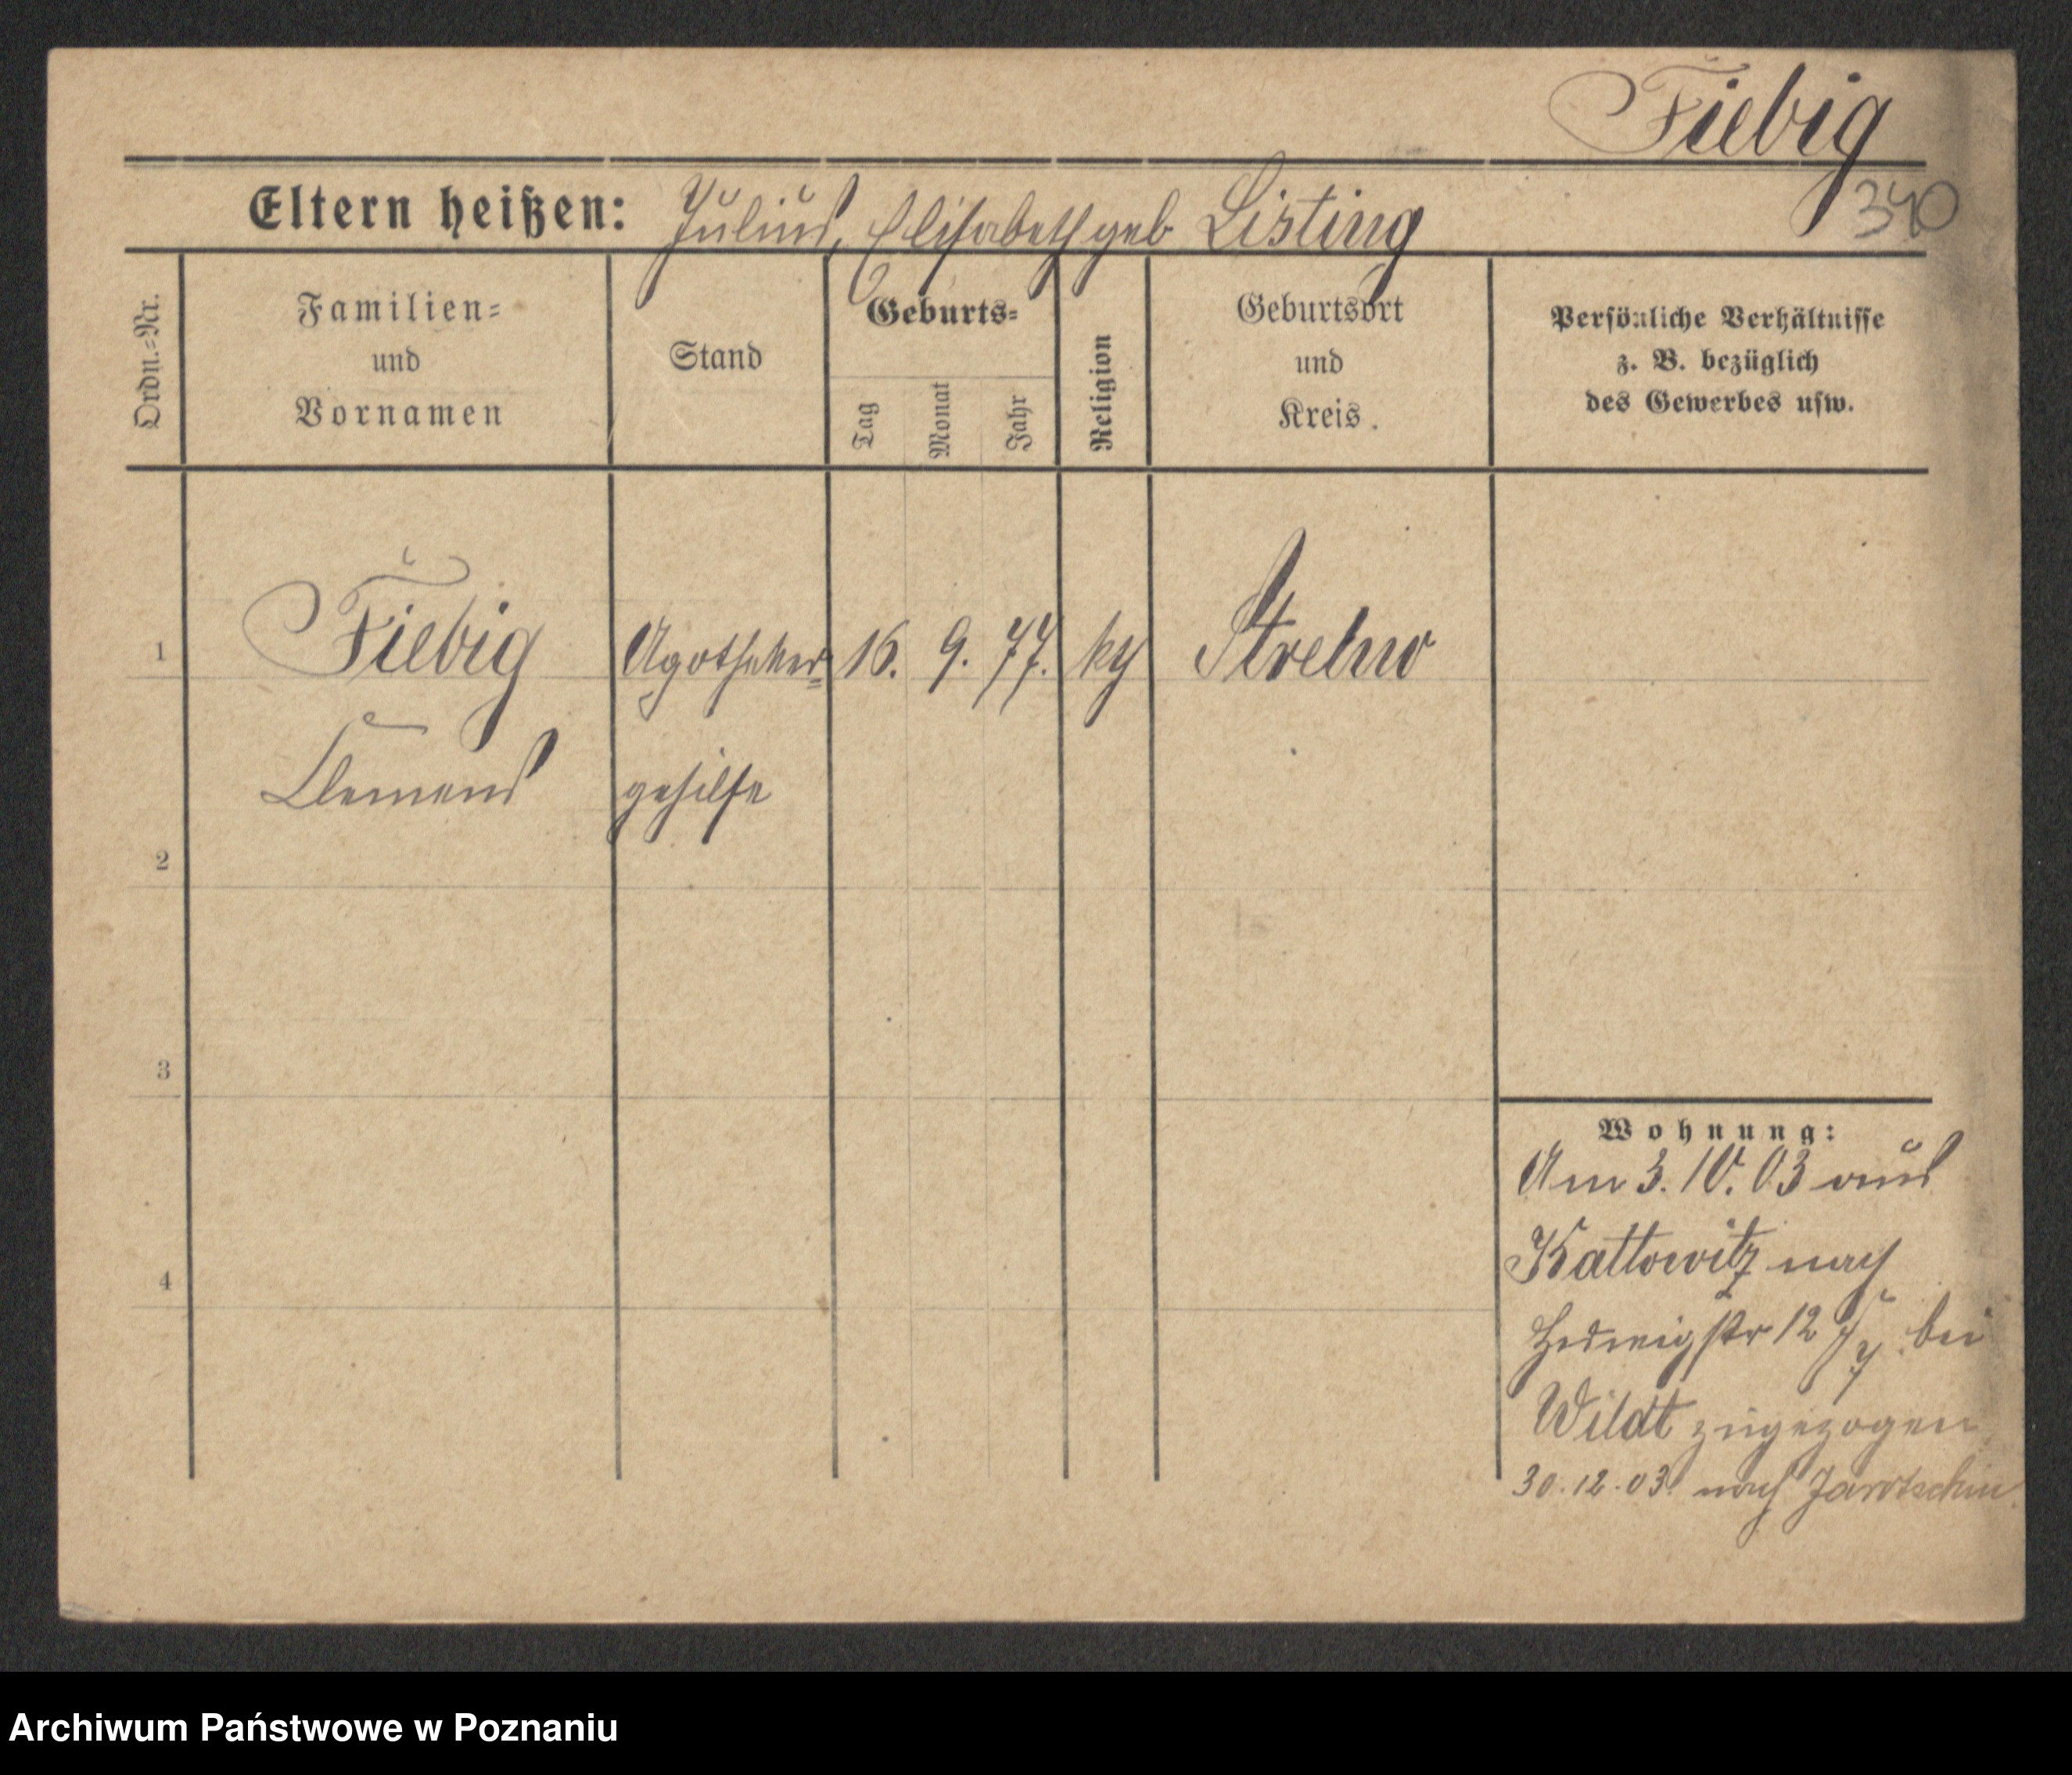 Fiebig
340
Eltern heißen: Julius, Elisabeth geb Listing
Ordn.-Nr.
Familien-
und
Vornamen
Stand
Geburts-
Tag
Monat
Jahr
Religion
Geburtsort
und
Kreis
Persönliche Verhältnisse
z. B. bezüglich
des Gewerbes usw.
1
Fiebig Apotheker- 16. 9. 77. Strelno
Clemens gehilfe
2
3
4
Wohnung:
Am 3. 10. 03 aus
Kattowitz nach
Hedwigstr 12 bei
Wildt zugezogen
30.12.03 nach Jarotschin
Archiwum Państwowe w Poznaniu